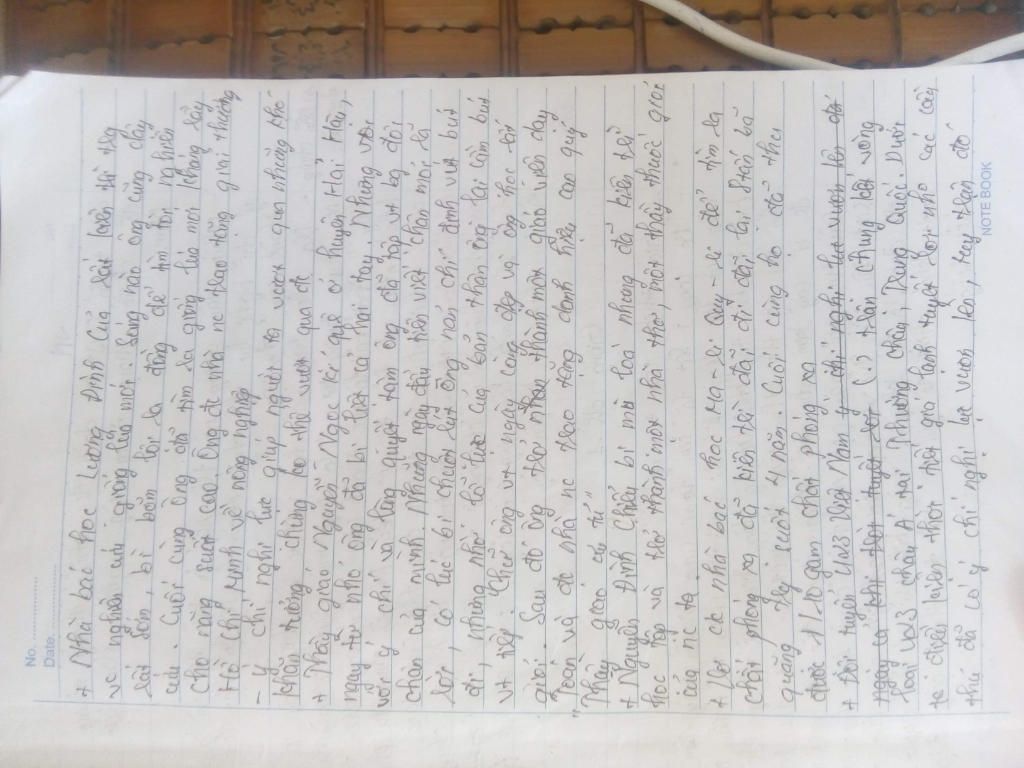 No. ..................
Date. ..................
+ Nhà bác học Lương Đình Của rất luôn tìm tòi
và nghiên cứu giống lúa mới. Sáng nào ông cũng dậy
rất sớm, bì bõm lội ra đồng để tìm tòi, nghiên
cứu. Cuối cùng ông đã tìm ra giống lúa mới kháng sâu
cho năng suất cao. Ông đc nhà nc trao tặng giải thưởng
Hồ Chí Minh về nông nghiệp
- Ý chí nghị lực giúp người ta vượt qua những khó
khăn tưởng chừng ko thể vượt qua đc
+ Thầy giáo Nguyễn Ngọc Kí quê ở huyện Hải Hậu,
ngay từ nhỏ ông đã bị liệt cả hai tay. Nhưng với
với ý chí và lòng quyết tâm ông đã tập vt bg đôi
chân của mình. Những ngày đầu tiên viết chân mỏi rã
rời, có lúc bị chuột rút ông nản chí định vứt bút
đi, nhưng nhờ nỗ lực của bản thân ông lại cầm bút
vt tiếp. Chữ ông vt ngày càng đẹp và ông học rất
giỏi. Sau đó ông trở thành một giáo viên dạy
Toán và đc nhà nc trao tặng danh hiệu cao quý
"Thầy giáo ưu tú"
+ Nguyễn Đình Chiểu bị mù loà nhưng đã kiên trì
học tập và trở thành một nhà thơ, một thầy thuốc giỏi
của nc ta
+ Vợ ck nhà bác học Ma-ri Quy-ri để tìm ra
chất phóng xạ đã kiên trì đãi đi đãi lại 8 tấn bã
quặng suốt 4 năm. Cuối cùng họ đã thu
được 1/10 gam chất phóng xạ
+ Đội tuyển U23 Việt Nam ý chí nghị lực vươn lên đó
(...) trận chung kết vòng
loại U23 châu Á tại Thường Châu, Trung Quốc. Dưới
đk thời tiết gió lạnh tuyết rơi nhờ các cầu
thủ đã có ý chí nghị lực vươn lên, trận đó
NOTE BOOK